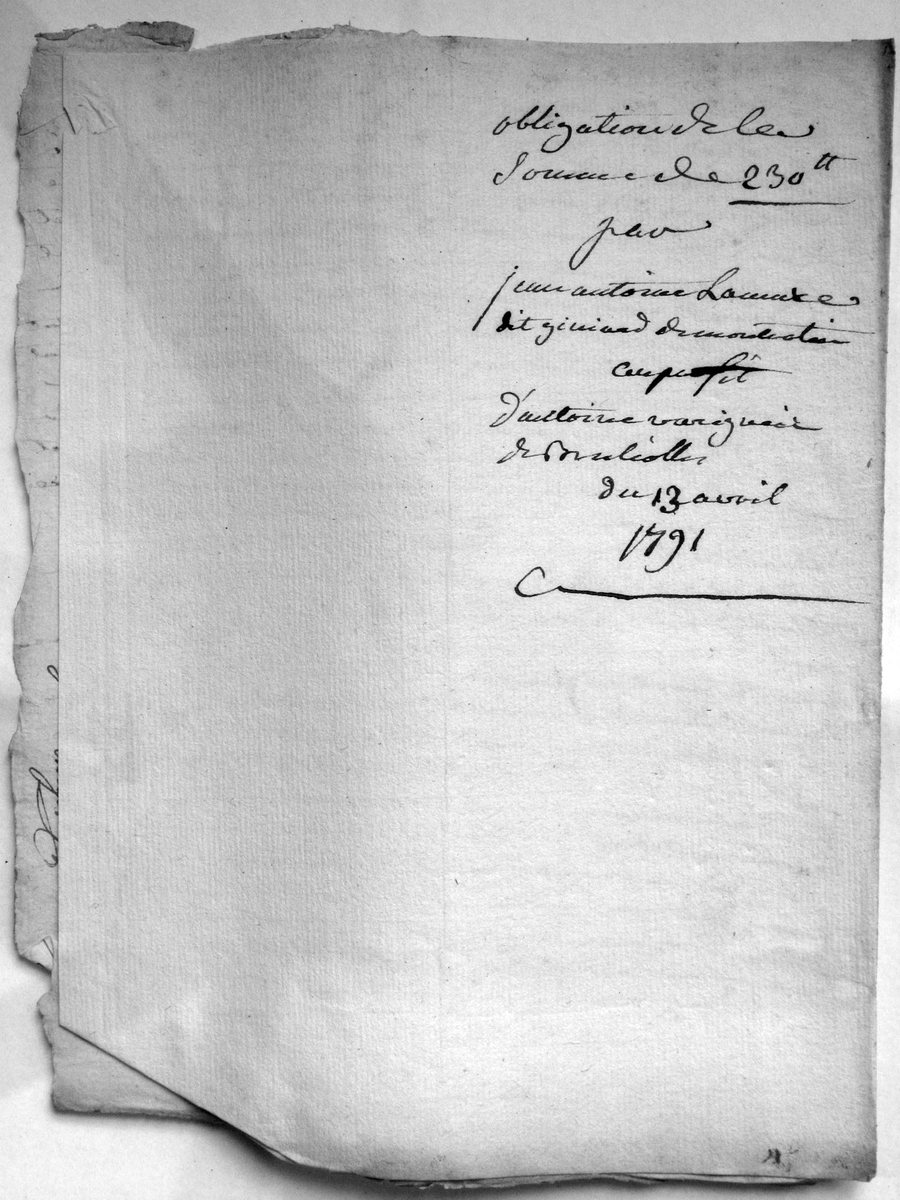 obligation de la
Somme de 230tt
par
jean antoine Lamure
dit giniard de montrotier
au profit
d'antoine varignier
de Brulliolles
du 13 avril
1791